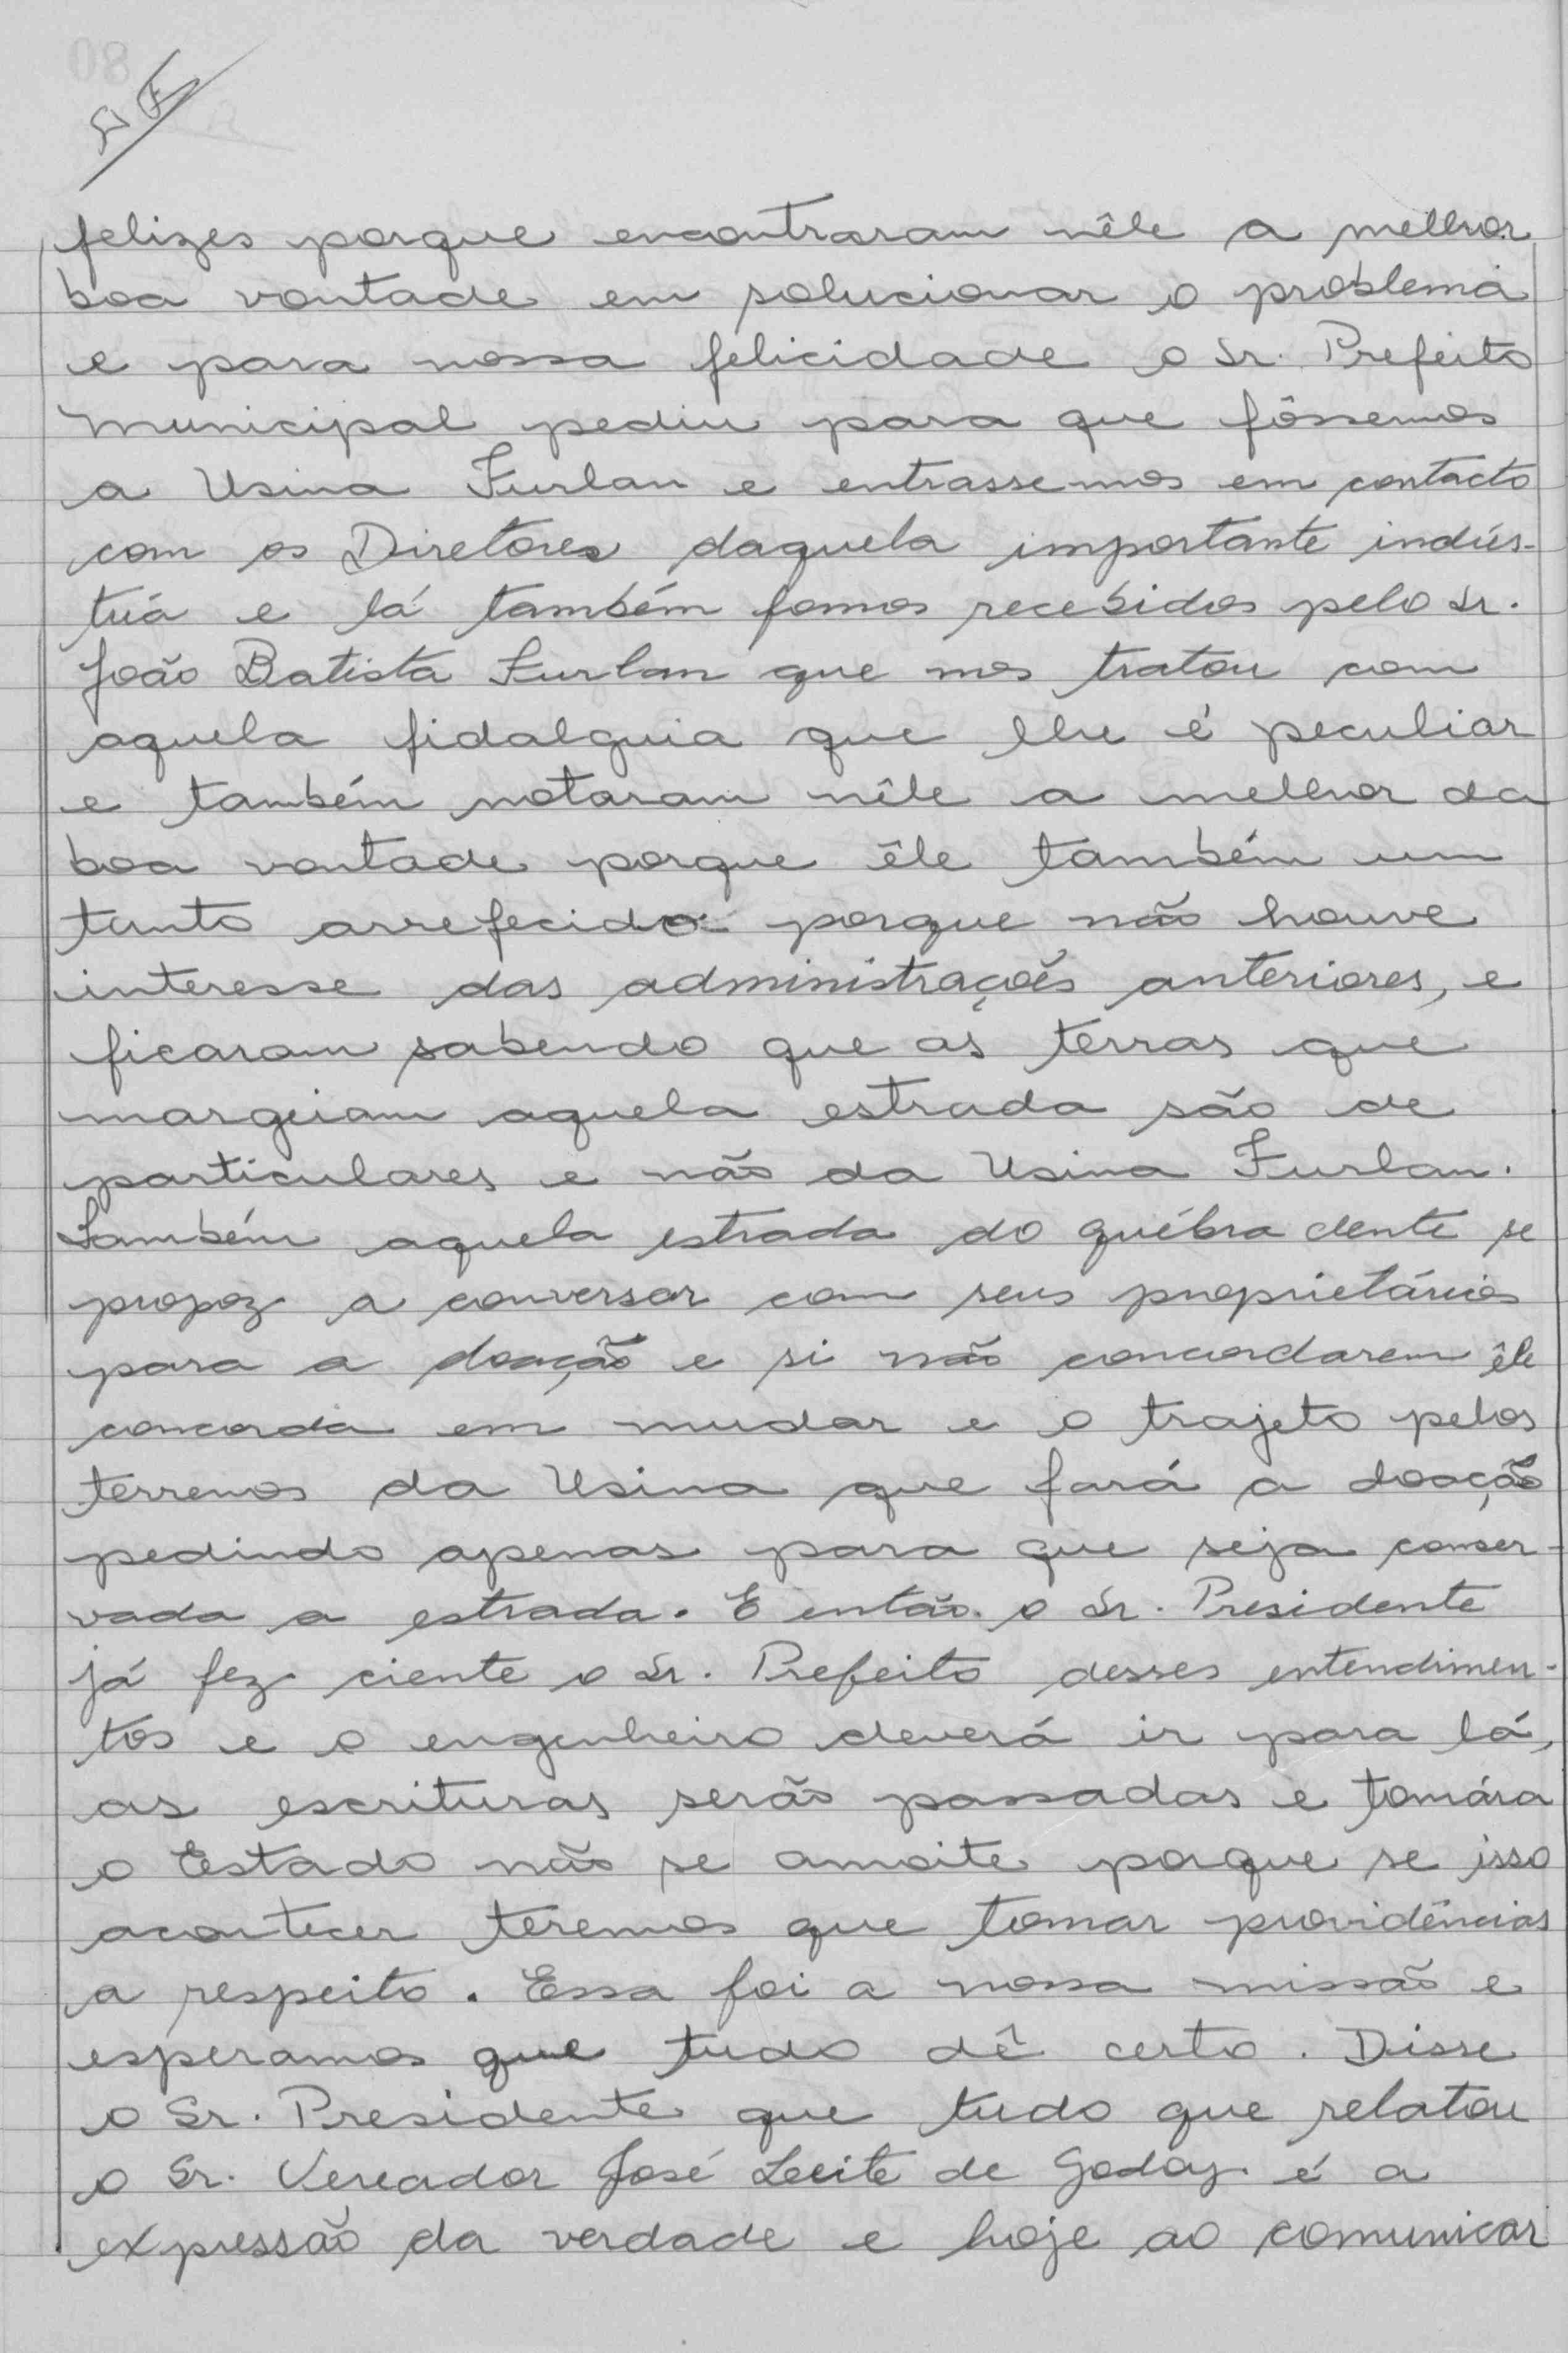 felizes porque encontraram nêle a melhor
boa vontade em solucionar o problema
e para nossa felicidade o Sr. Prefeito
Municipal pediu para que fôssemos
a Usina Furlan e entrassemos em contacto
com os Diretores daquela importante indús-
tria e lá também fomos recebidos pelo Sr.
João Batista Furlan que nos tratou com
aquela fidalguia que lhe é peculiar
e também notaram nêle a melhor da
boa vontade porque êle também um
tanto arrefecido porque não houve
interesse das administrações anteriores, e
ficaram sabendo que as terras que
margeiam aquela estrada são de
particulares e não da Usina Furlan.
Também aquela estrada do québra dente se
propoz a conversar com seus proprietários
para a doação e si não concordarem êle
concorda em mudar e o trajeto pelos
terrenos da Usina que fará a doação
pedindo apenas para que seja conser-
vada a estrada. E então o Sr. Presidente
já fez ciente o Sr. Prefeito desses entendimen-
tos e o engenheiro deverá ir para lá,
as escrituras serão passadas e tomára
o Estado não se amoite porque se isso
acontecer teremos que tomar providências
a respeito. Essa foi a nossa missão e
esperamos que tudo dê certo. Disse
o Sr. Presidente que tudo que relatou
o Sr. Vereador José Leite de Godoy é a
expressão da verdade e hoje ao comunicar